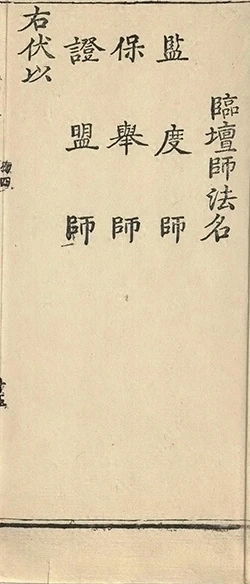 臨壇師法名
監度師
保舉師
證盟師
右伏以